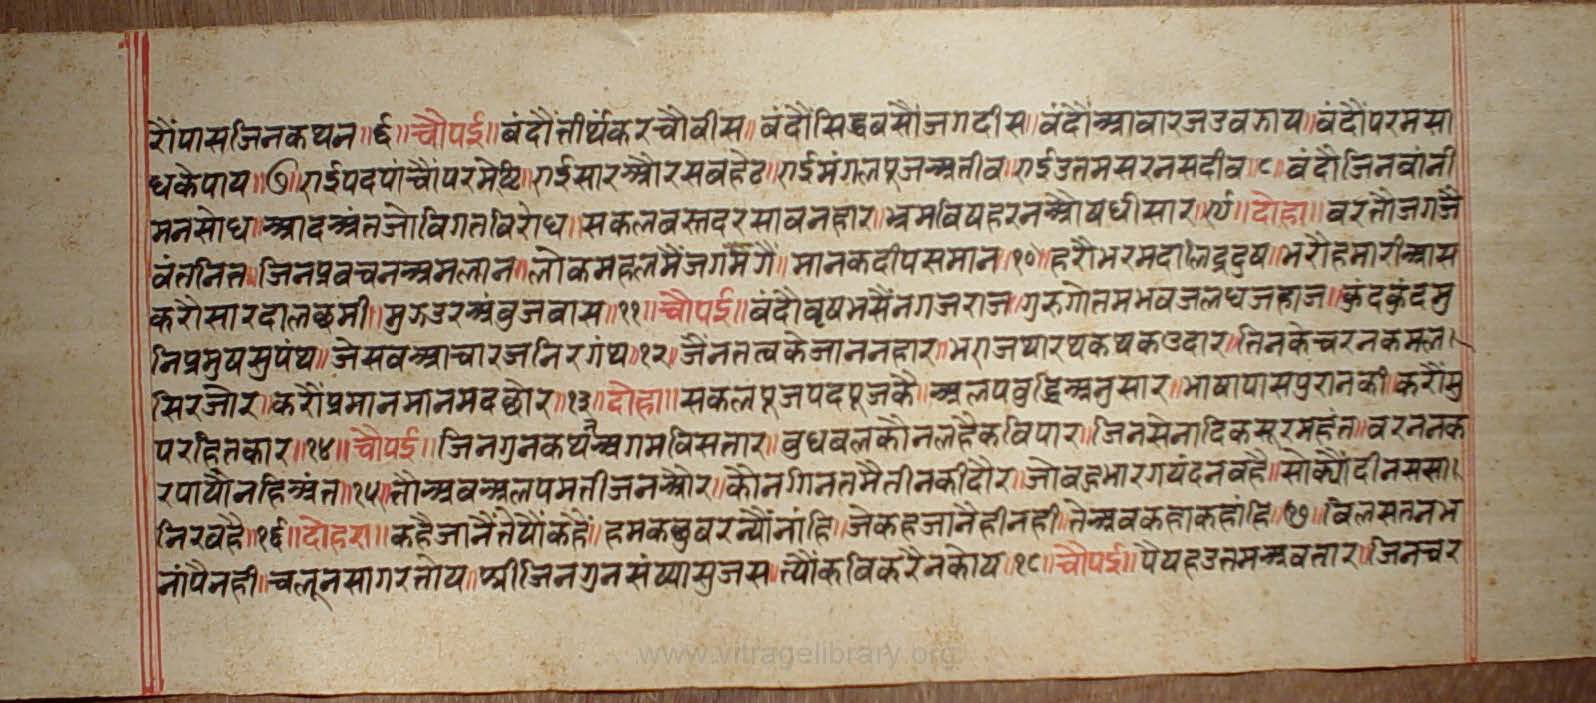 रौंपासजिनकथन॥६॥चौपई॥बंदौंतीर्थंकरचौवीस॥बंदौंसिद्धबसौंजगदीस॥बंदौंआचारजउवझाय॥बंदौंपरमसा
धकेपाय॥७॥एईपदपांचौंपरमेष्टि॥एईसारऔरसवहेठ॥एईमंगलपूजअतीव॥एईउत्तमसरनसदीव॥८॥वंदौंजिनवांनी
मनसोध॥आदअंतजोविगतविरोध॥सकलबस्तदरसावनहार॥भ्रमविषहरनऔषधीसार॥९॥दोहा॥बरतौजगजै
वंतनित॥जिनप्रवचनअमलान॥लोकमहलमैंजगमगै॥मानकदीपसमान॥१०॥हरौभरमदालिद्रदुष॥भरौहमारीआस
करौसारदालछमी॥मुझउरअंबुजवास॥११॥चौपई॥बंदौवृषभसैंनगजराज॥गुरुगोतमभवजलधजहाज॥कुंदकुंदमु
निप्रमुषसुपंथ॥जेसवआचारजनिरगंथ॥१२॥जैनतत्वकेजाननहार॥भएजथारथकथकउदार॥तिनकेचरनकमल
सिरजोर॥करौंप्रमानमानमदछोर॥१३॥दोहा॥सकलपूजपदपूजकै॥अलपबुद्धिअनुसार॥भाषापासपुरानकी॥करौंसु
परहितकार॥१४॥चौपई॥जिनगुनकथनअगमविसतार॥वुधबलकौनलहैकविपार॥जिनसेनादिकसूरमहंत॥वरननक
रपायौनहिअंत॥१५॥तौअवअलपमतीजनऔर॥कौनगिनतमैतीनकीदौर॥जोबहुभारगयंदनवहै॥सोक्यौंदीनससा
निरवहै॥१६॥दोहरा॥कहैजानैंतेयौंकहैं॥हमकछुवरन्यौंनांहि॥जेकहजानैहीनही॥तेअवकहाकहांहि॥१७॥विलसतनभ
नांपैनही॥चलूनसागरतोय॥श्रीजिनगुनसंख्यासुजस॥त्यौंकविकरैनकोय॥१८॥चौपई॥पैयहउत्तमअवतार॥जिनवर
www.vitragelibrary.org